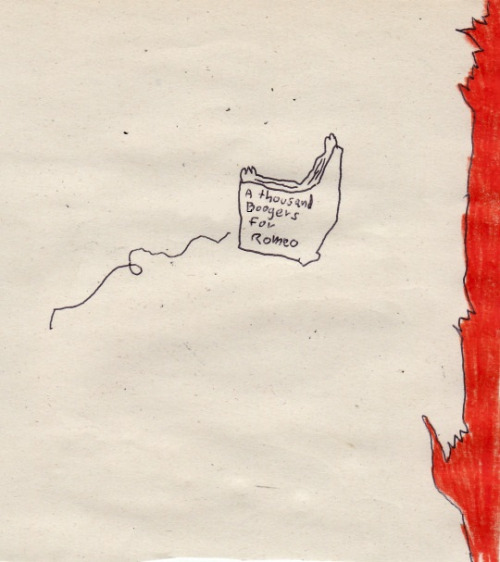 A thousand
Boogers
For
Romeo